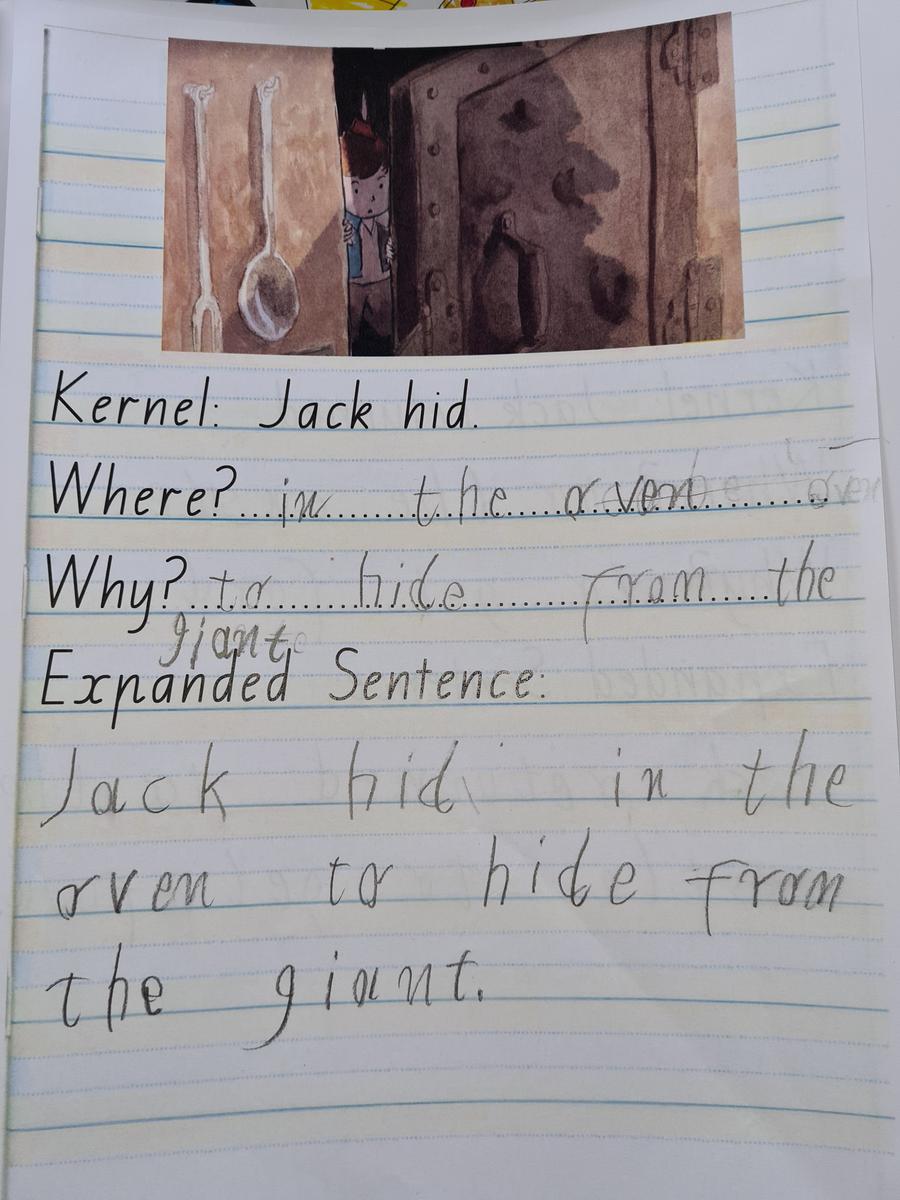 Kernel: Jack hid.
Where? in the oven oven
Why? to hide from the
giant
Expanded Sentence:
Jack hid in the
oven to hide from
the giant.